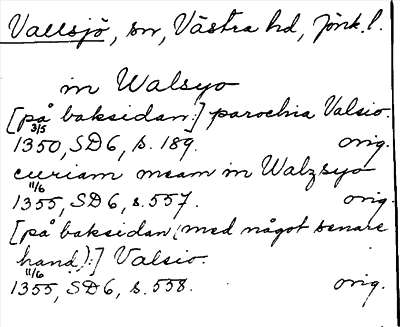 Vallsjö, sn, Västra hd, Jönk.l.
in Walsyo
[på baksidan:] parochia Valsio.
3/5
1350, SD6, s. 189. orig.
curiam meam in Walzsyo
11/6
1355, SD6, s. 557. orig.
[på baksidan (med något senare
hand):] Valsio.
11/6
1355, SD6, s. 558. orig.